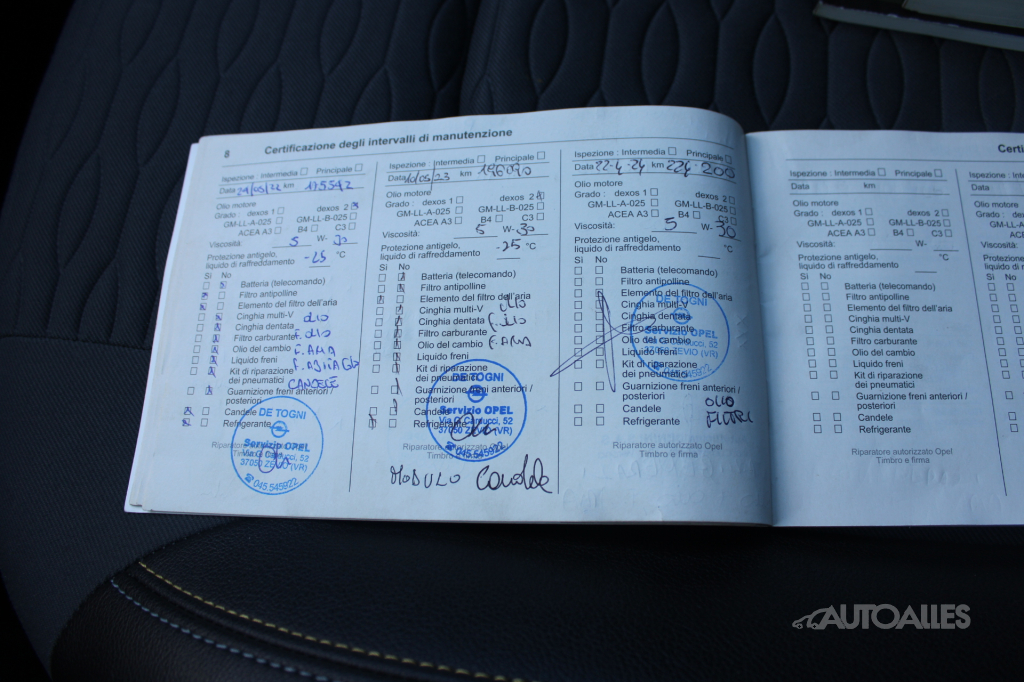 8 Certificazione degli intervalli di manutenzione
Ispezione : Intermedia Principale
Data km 175542
Olio motore
Grado : dexos 1 dexos 2
GM-LL-A-025 GM-LL-B-025
ACEA A3 B4 C3
Viscosità: 5 W- 30
Protezione antigelo,
liquido di raffreddamento -25 °C
Sì No
Batteria (telecomando)
Filtro antipolline
Elemento del filtro dell'aria
Cinghia multi-V OLIO
Cinghia dentata
Filtro carburante F. OLIO
Olio del cambio F. ARIA
Liquido freni
Kit di riparazione
dei pneumatici CANDELE
Guarnizione freni anteriori /
posteriori
Candele
Refrigerante
DE TOGNI
Servizio OPEL
37050 ZEVIO (VR)
☎ 045.545922
Ispezione : Intermedia Principale
Data 10/05/23 km 196090
Olio motore
Grado : dexos 1 dexos 2
GM-LL-A-025 GM-LL-B-025
ACEA A3 B4 C3
Viscosità: 5 W- 30
Protezione antigelo,
liquido di raffreddamento -25 °C
Sì No
Batteria (telecomando)
Filtro antipolline
Elemento del filtro dell'aria
Cinghia multi-V OLIO
Cinghia dentata F. OLIO
Filtro carburante F. ARIA
Olio del cambio
Liquido freni
Kit di riparazione
dei pneumatici
Guarnizione freni anteriori /
posteriori
Candele
Refrigerante
DE TOGNI
Servizio OPEL
37050 ZEVIO (VR)
☎ 045.545922
Riparatore autorizzato Opel
Timbro e firma
MODULO Candele
Ispezione : Intermedia Principale
Data 22-4-24 km 224.200
Olio motore
Grado : dexos 1 dexos 2
GM-LL-A-025 GM-LL-B-025
ACEA A3 B4 C3
Viscosità: 5 W- 30
Protezione antigelo,
liquido di raffreddamento °C
Sì No
Batteria (telecomando)
Filtro antipolline
Elemento del filtro dell'aria
Cinghia multi-V
Cinghia dentata
Filtro carburante
Olio del cambio
Liquido freni
Kit di riparazione
dei pneumatici
Guarnizione freni anteriori /
posteriori
Candele OLIO
Refrigerante FILTRI
DE TOGNI
Servizio OPEL
37050 ZEVIO (VR)
Riparatore autorizzato Opel
Timbro e firma
Ispezione : Intermedia Principale
Data km
Olio motore
Grado : dexos 1 dexos 2
GM-LL-A-025 GM-LL-B-025
ACEA A3 B4 C3
Viscosità: W-
Protezione antigelo,
liquido di raffreddamento °C
Sì No
Batteria (telecomando)
Filtro antipolline
Elemento del filtro dell'aria
Cinghia multi-V
Cinghia dentata
Filtro carburante
Olio del cambio
Liquido freni
Kit di riparazione
dei pneumatici
Guarnizione freni anteriori /
posteriori
Candele
Refrigerante
Riparatore autorizzato Opel
Timbro e firma
AUTOALLES